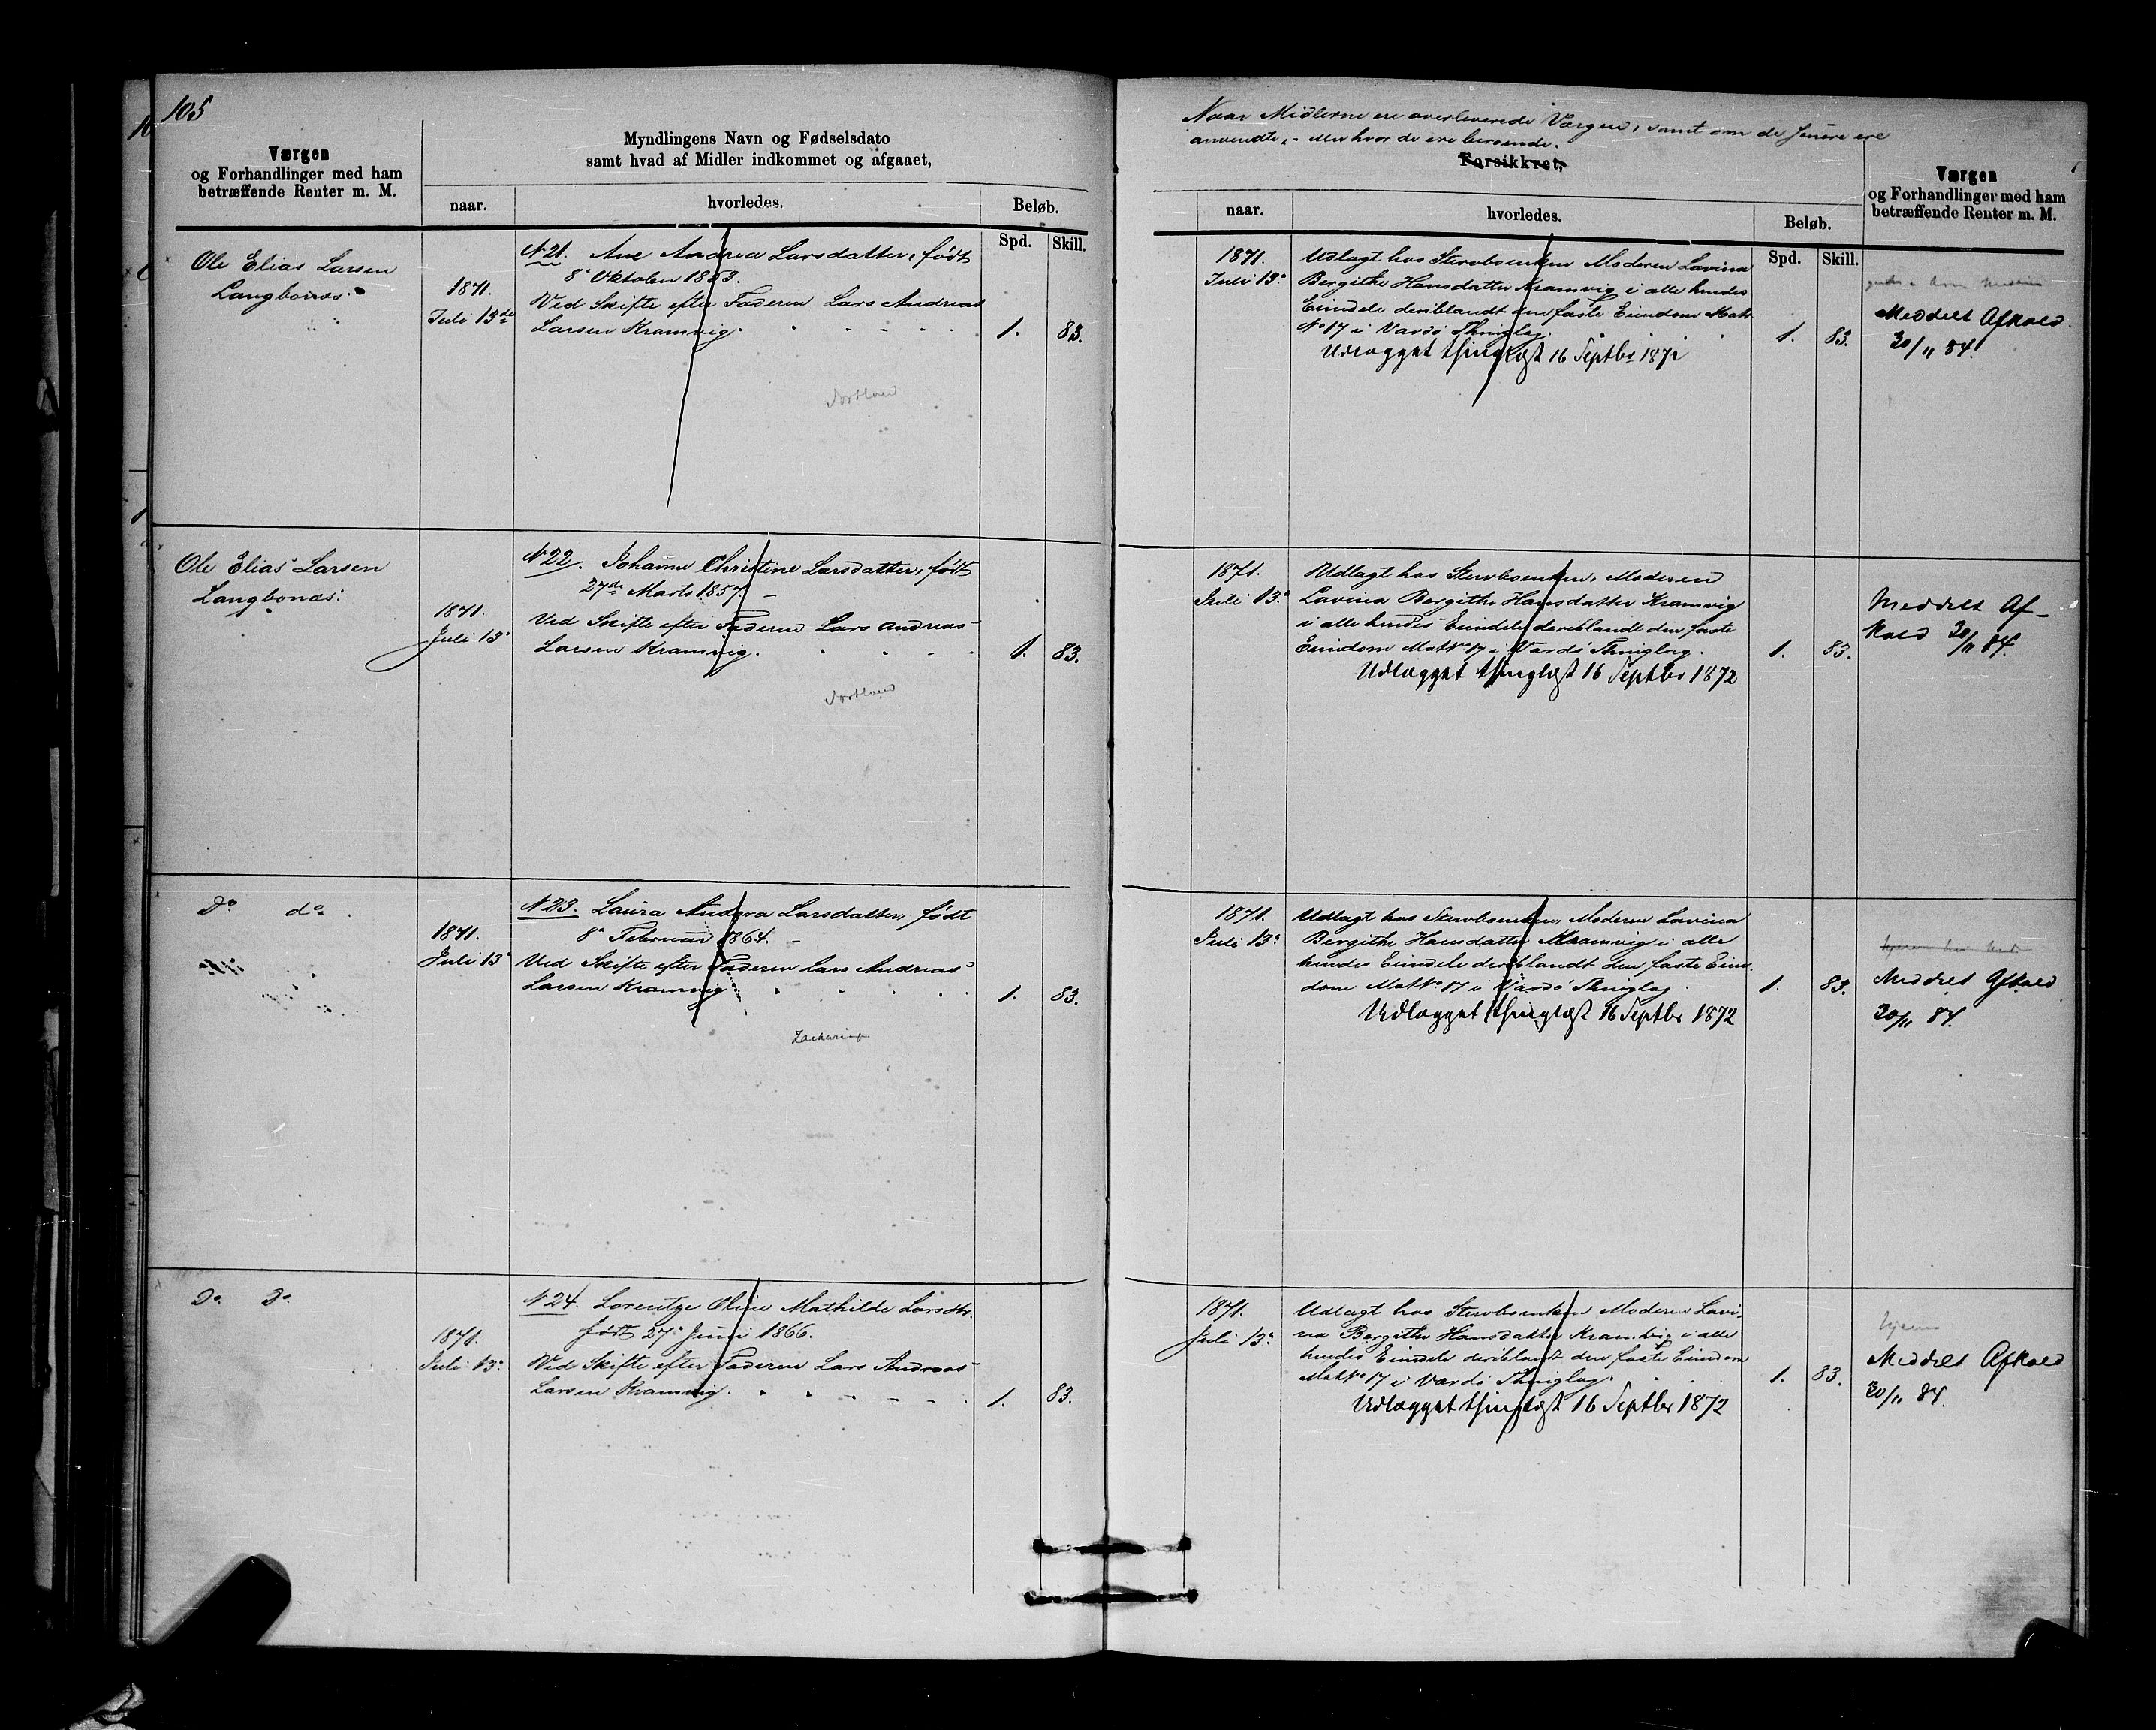 105
Værgen
og Forhandlinger med ham
betræffende Renter m. M.
Myndlingens Navn og Fødselsdato
samt hvad af Midler indkommet og afgaaet,
naar.
hvorledes.
Beløb.
Spd.
Skill.
Ole Elias Larsen
Langbonæs.
1871.
Juli 13de
N 21. Ane Andrea Larsdatter, født
8de Oktober 1853.
Ved Skifte efter Faderen Lars Andreas
Larsen Kramvig.
1.
83.
Ole Elias Larsen
Langbonæs.
1871.
Juli 13.
N 22. Johanne Christine Larsdatter, født
27de Marts 1857. –
Ved Skifte efter Faderen Lars Andreas
Larsen Kramvig.
1.
83.
Do do.
1871.
Juli 13.
N 23. Laura Andora Larsdatter, født
8de Februar 1864. –
Ved Skifte efter Faderen Lars Andreas
Larsen Kramvig
1.
83.
Zacharias
Do. Do.
1871.
Juli 13.
N 24. Lorentze Oline Mathilde Larsdtr.
født 27. Juni 1866.
Ved Skifte efter Faderen Lars Andreas
Larsen Kramvig.
1.
83.
Naar Midlerne ere overleverede Værgen, samt om de ere
anvendte, eller hvor de ere beroende.
Forsikkret,
naar.
hvorledes.
Beløb.
Spd.
Skill.
Værgen
og Forhandlinger med ham
betræffende Renter m. M.
1871.
Juli 13.
Udlagt hos Stervboenken Moderen Lavina
Bergithe Hansdatter Kramvig i alle hendes
Eiendele deriblandt den faste Eiendom Matr.
No 17 i Vardø Thinglag.
1.
83.
Udlægget thinglæst 16 Septbr 1872
Meddelt Afkald
30/11 84.
1871.
Juli 13.
Udlagt hos Stervboenken, Moderen
Lavina Bergithe Hansdatter Kramvig
i alle hendes Eiendele deriblandt den faste
Eiendom Mat No 17 i Vardö Thinglag.
1.
83.
Udlægget thinglæst 16 Septbr 1872
Meddelt Af-
kald 30/11 84.
1871.
Juli 13.
Udlagt hos Stervboenken, Moderen Lavina
Bergithe Hansdatter Kramvig i alle
hendes Eiendele deriblandt den faste Eien-
dom Mat No 17 i Vardö Thinglag.
1.
83.
Udlægget thinglæst 16 Septbr 1872
Meddelt Afkald
30/11 84.
1871.
Juli 13.
Udlagt hos Stervboenken Moderen Lavi-
na Bergithe Hansdatter Kramvig i alle
hendes Eiendele deriblandt den faste Eiendom
Mat No 17 i Vardö Thinglag.
1.
83.
Udlægget thinglæst 16 Septbr 1872
Meddelt Afkald
30/11 84.